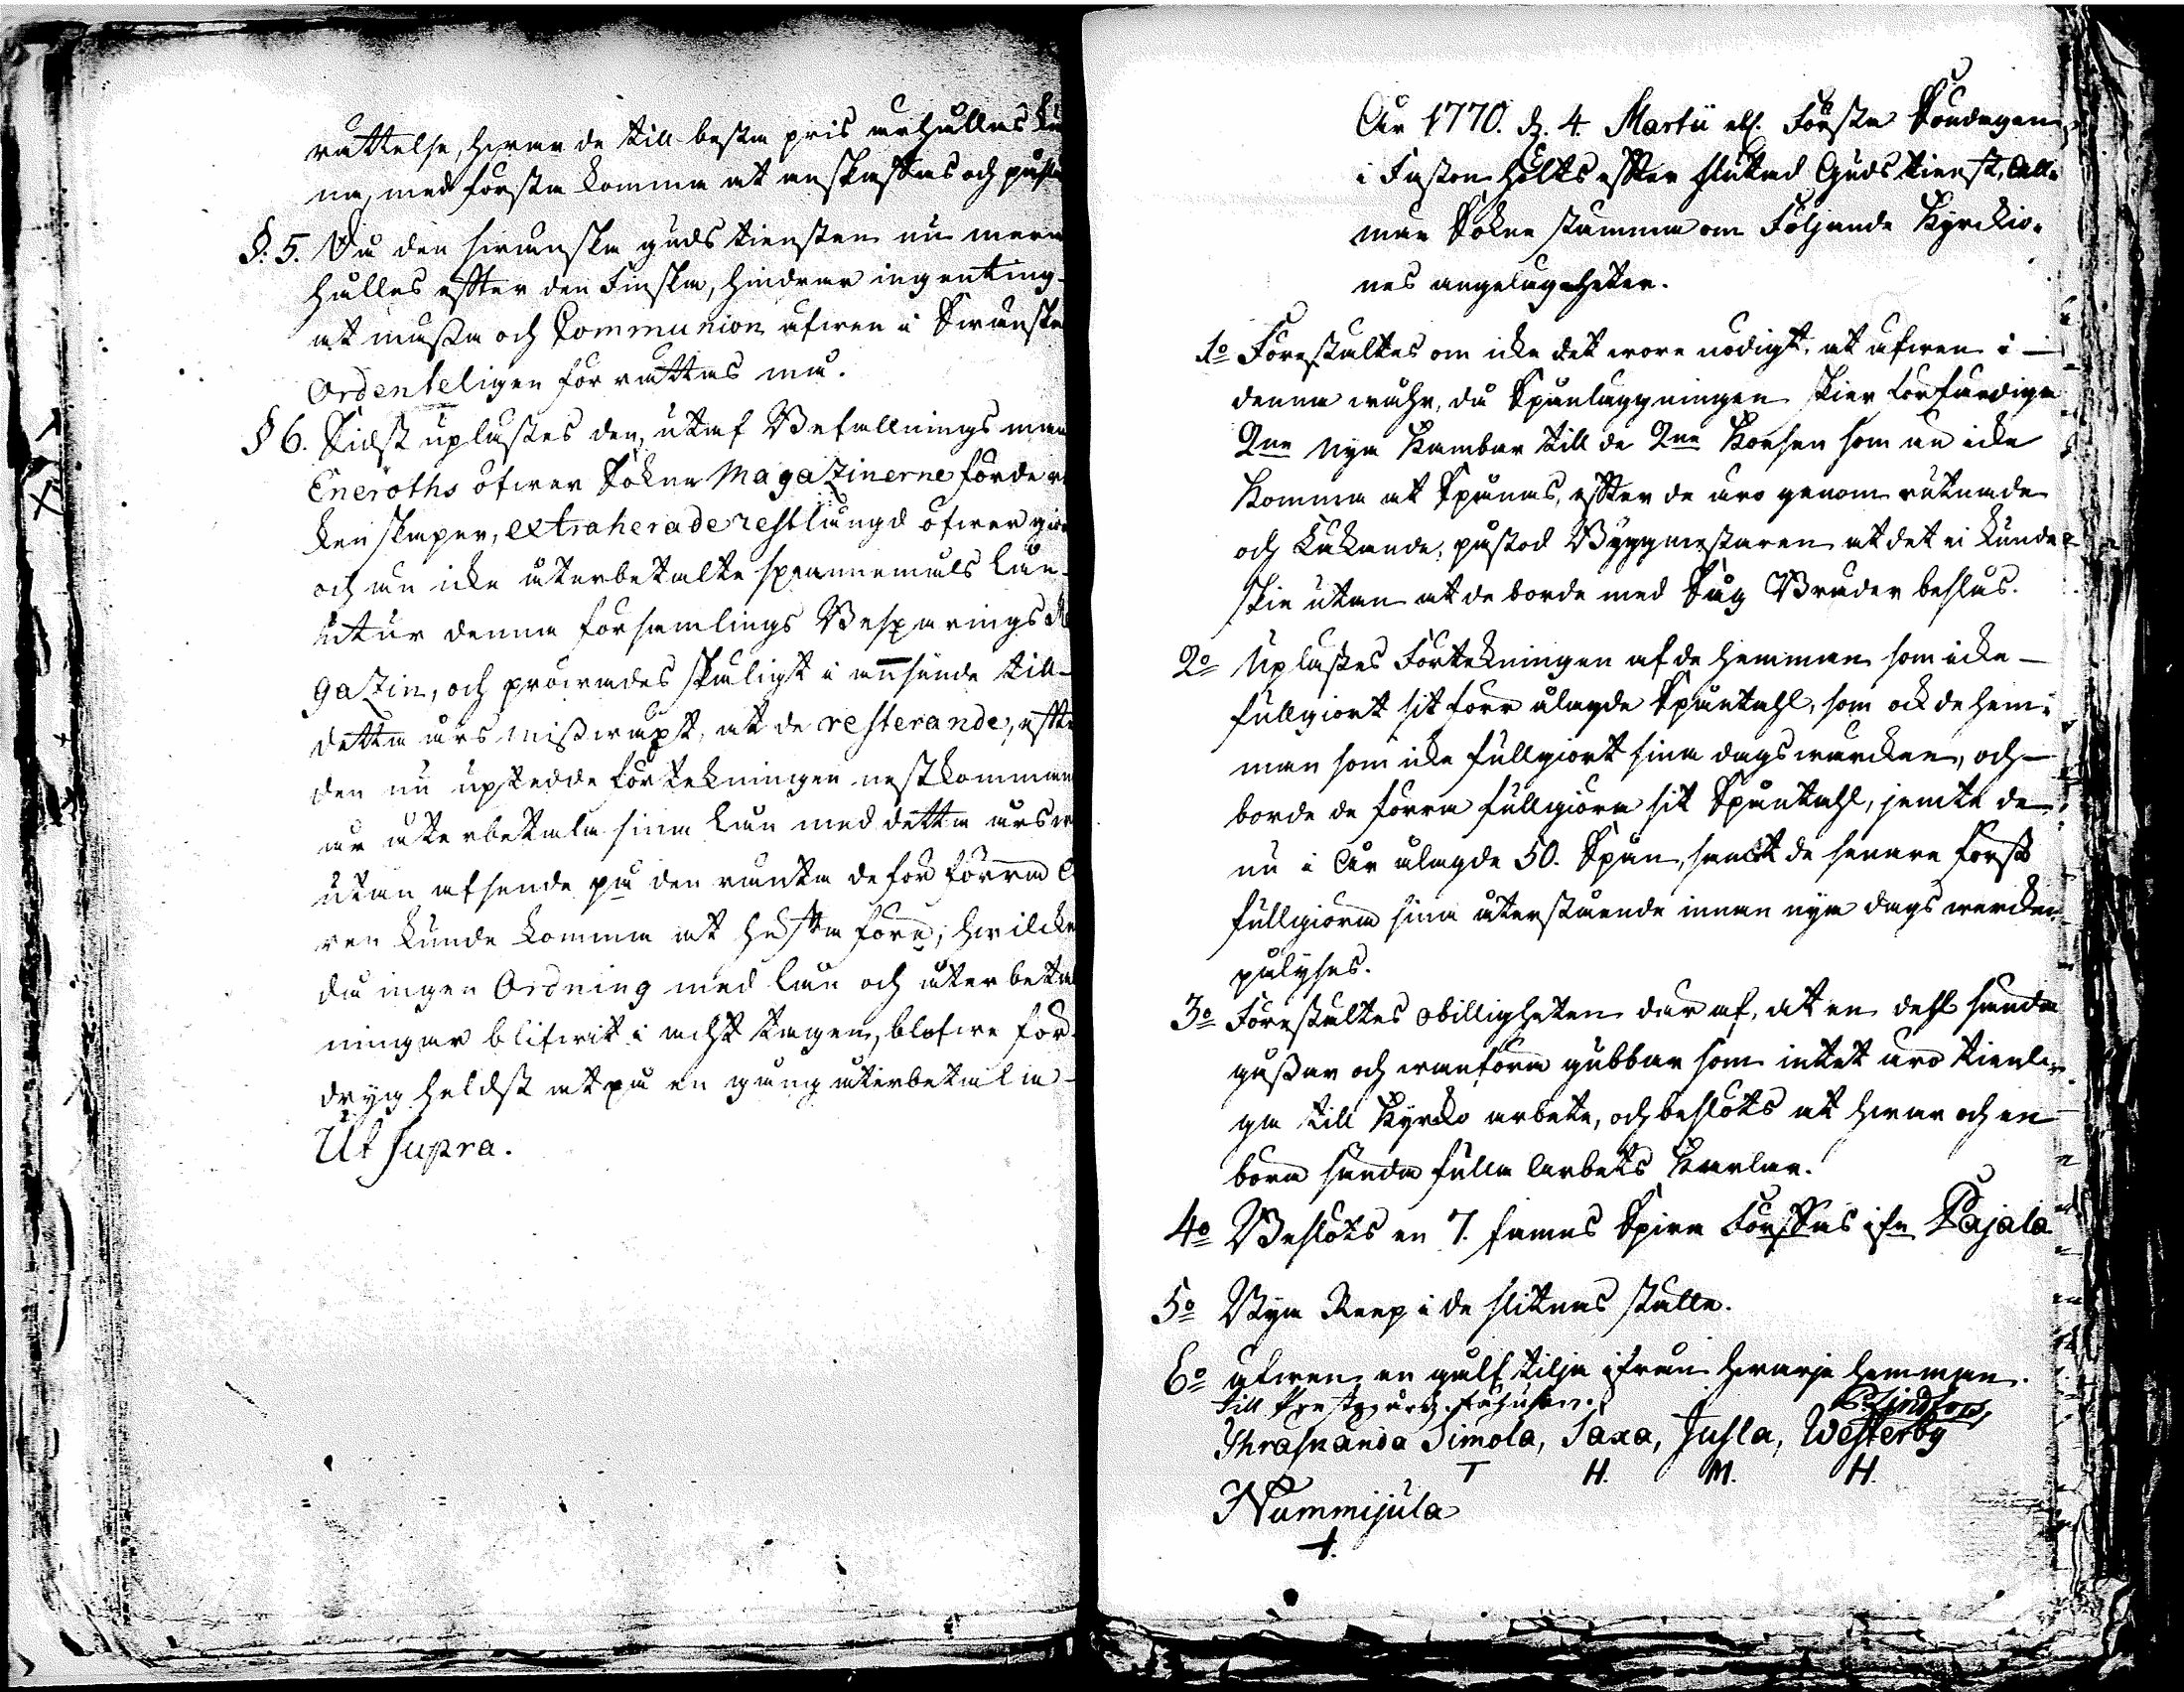 rättelse, hvar de till bästa pris erhållas kun
na, med första komma at anskaffas och
§. 5. Då den svenska guds tiensten nu mera
hålles effter den Finska, hindrar ingenting
at mässa och Communion äfwen i Swenska
Ordenteligen för rättas må.
§ 6. Sidst uplästes den, utaf Befallnings man
Eneroths öfwer Sokne Magazinerne förde rä
kenskaper, extraherade restlängd öfwer
och än icke återbetalte spannemåls lån
utur denna församlings Besparings Ma
gazin, och pröwades skäligt i ansende till
detta års misswäxt, at de resterande, effter
den nu uptedde förtekningen nestkommande
år återbetala sina lån med detta års
utan afsende på den ränta de för förra å
ren kunde komma at häfta före; hwilcken
då ingen Ordning med lån och återbetal
ningar blifwit i acht tagen, blefwe för
dryg heldst at på en gång återbetala
Ut supra.
Åhr 1770. d. 4 Martii ell. Första Söndagen
i Fastan, hölts effter slutad Guds tienst, All-
män Sokne stämma om Följande Kyrckio-
nes angelägenheter.
1o Förestältes om icke det wore nödigt, at äfwen i
denna wåhr, då Spånläggningen skier förfärdiga
2ne nya Kambar till de 2ne Korsen som än icke
komma at Spånas, effter de äro genom rutnade
och Läkande; påstod Byggmestaren at det ei kunde
skie utan at de borde med Såg Bräder beslås.
2o Uplästes Förtekningen af de hemman som icke
fullgiort sit förr ålagde Spåntahl, som ock de hem-
man som icke fullgiort sina dagswärcken, och
borde de förra fullgiöra sit Spåntahl, jemte de
nu i År ålagde 50. Spån, samt de senare först
fullgiöra sina återstående innan nya dags wercken
pålyses.
3o Förestältes obilligheten der af, at en dehl sända
gossar och wanföra gubbar som intet äro tienli-
ga till Kyrcko arbete, och beslöts at hwar och en
bora sända fulla Arbets Karlar.
4o Beslöts en 7. famns Spira Forsslas ifr. Pajala
5o Nya Reep i de slitnas ställe.
6o äfwen en gålf tilja ifrån hwarje hemman.
till Prestgårds
C. Lindfors,
Yhräsnanda Simola, Saxa, Jusla, Westerby
T H. M. H.
Nummijula
+.